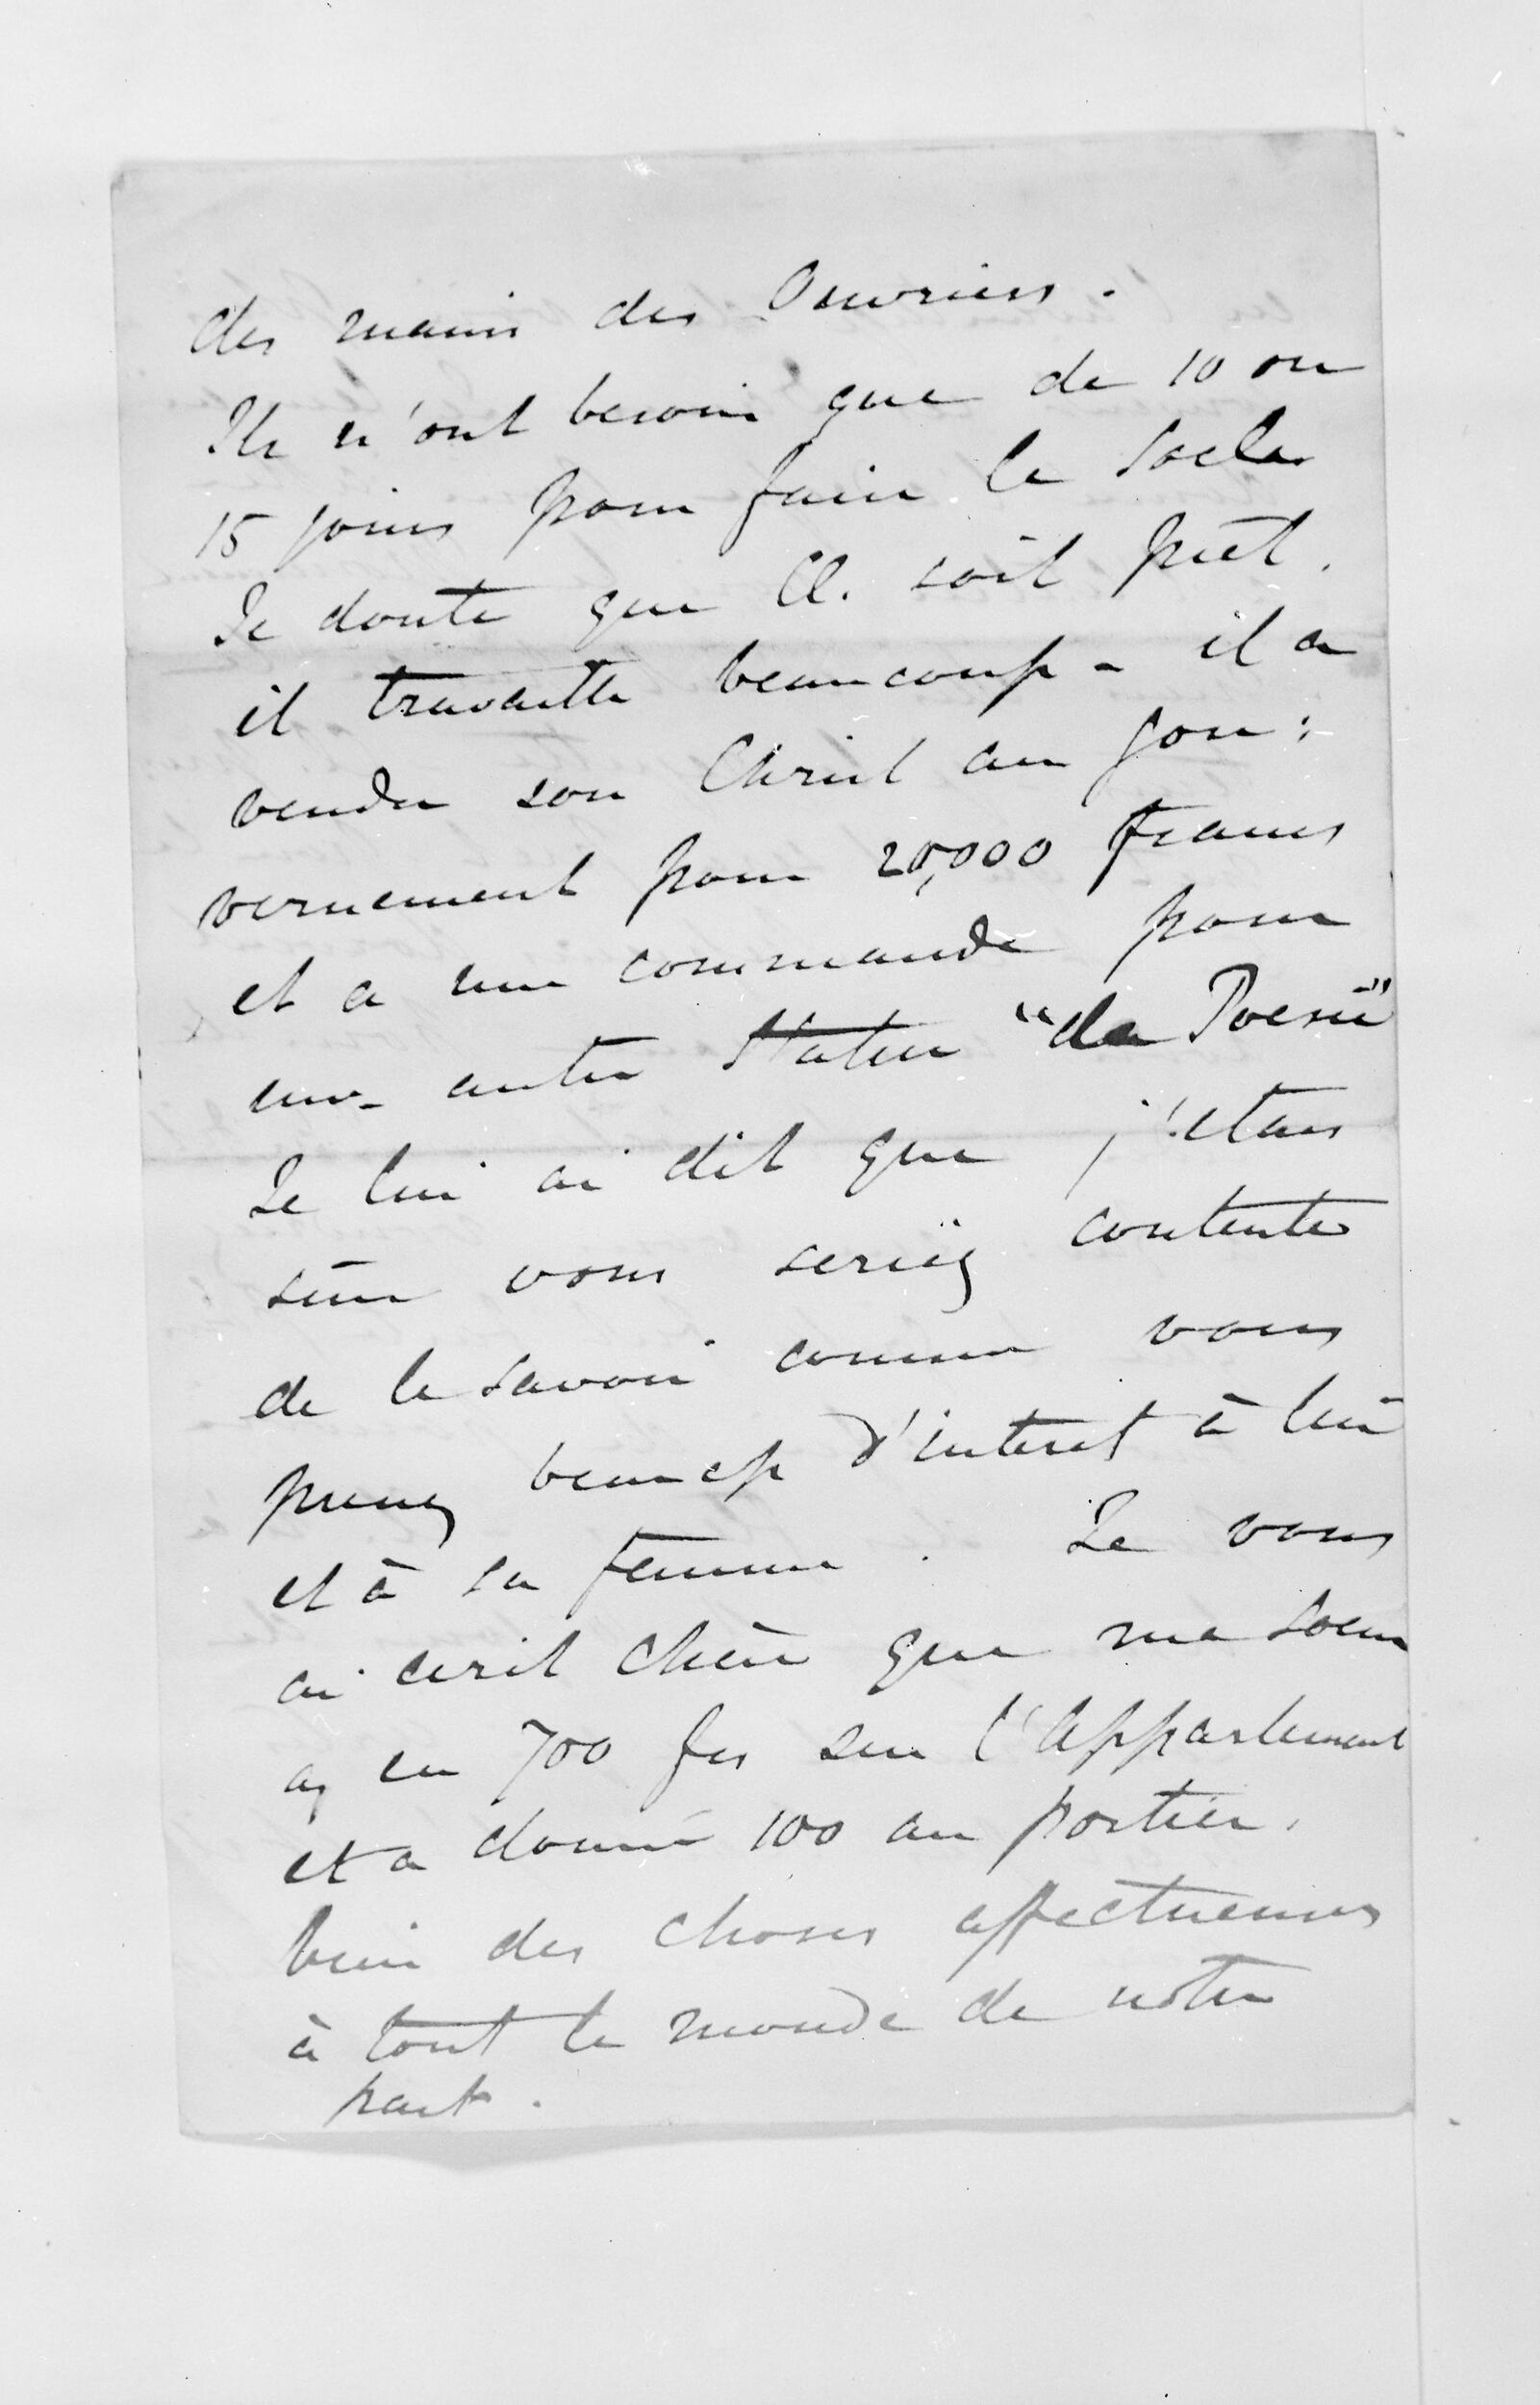 des mains des Ouvriers.
Ils n'ont besoin que de 10 ou
15 jours pour faire le socle
Je doute que Cl. soit prêt.
il travaille beaucoup - il a
vendu son Christ au gou:
vernement pour 20,000 francs
et a une commande pour
une autre Statue "la Poesie"
Je lui ai dit que j'etais
sûre vous seriëz contente
de le savoir comme vous
prenez beaucp d'interet à lui
et à sa femme. Je vous
ai ecrit chère que ma soeur
a eu 700 frs sur l'appartement
et a donné 100 au portier.
bien des choses affectueuses
à tout le monde de notre
part.